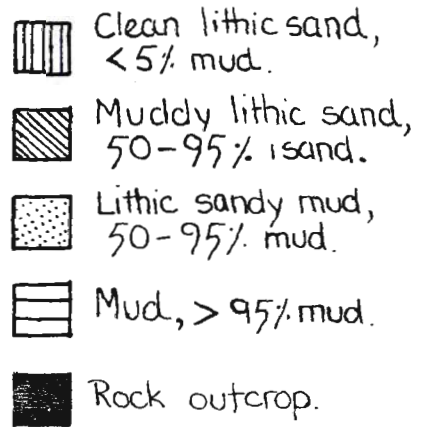 Clean lithic sand,
<5% mud.
Muddy lithic sand,
50-95% sand.
Lithic sandy mud,
50-95% mud.
Mud, > 95% mud.
Rock outcrop.